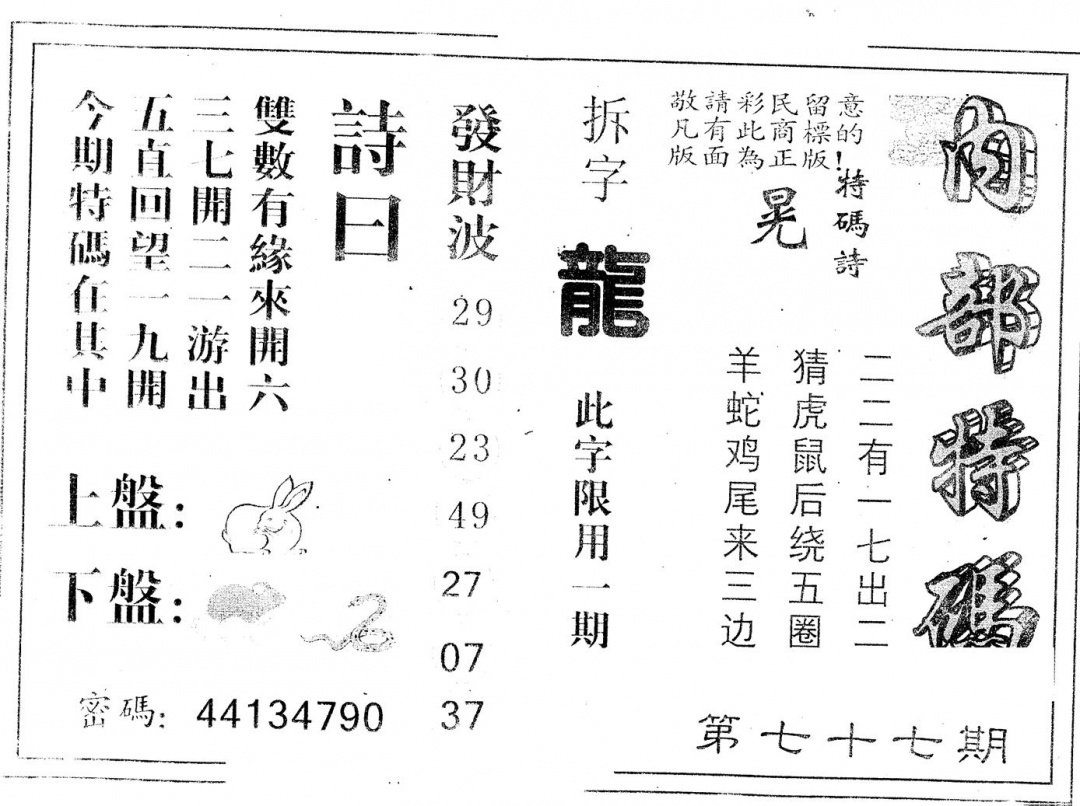 内部特碼
第七十七期
敬請彩民留意
凡有此商標的!
版面為正版
特碼詩
晃
二二有一七出二
猜虎鼠后绕五圈
羊蛇鸡尾来三边
拆字
龍
此字限用一期
發財波
29
30
23
49
27
07
37
詩曰
雙數有緣來開六
三七開二一游出
五直回望一九開
今期特碼在其中
上盤:
下盤:
密碼: 44134790